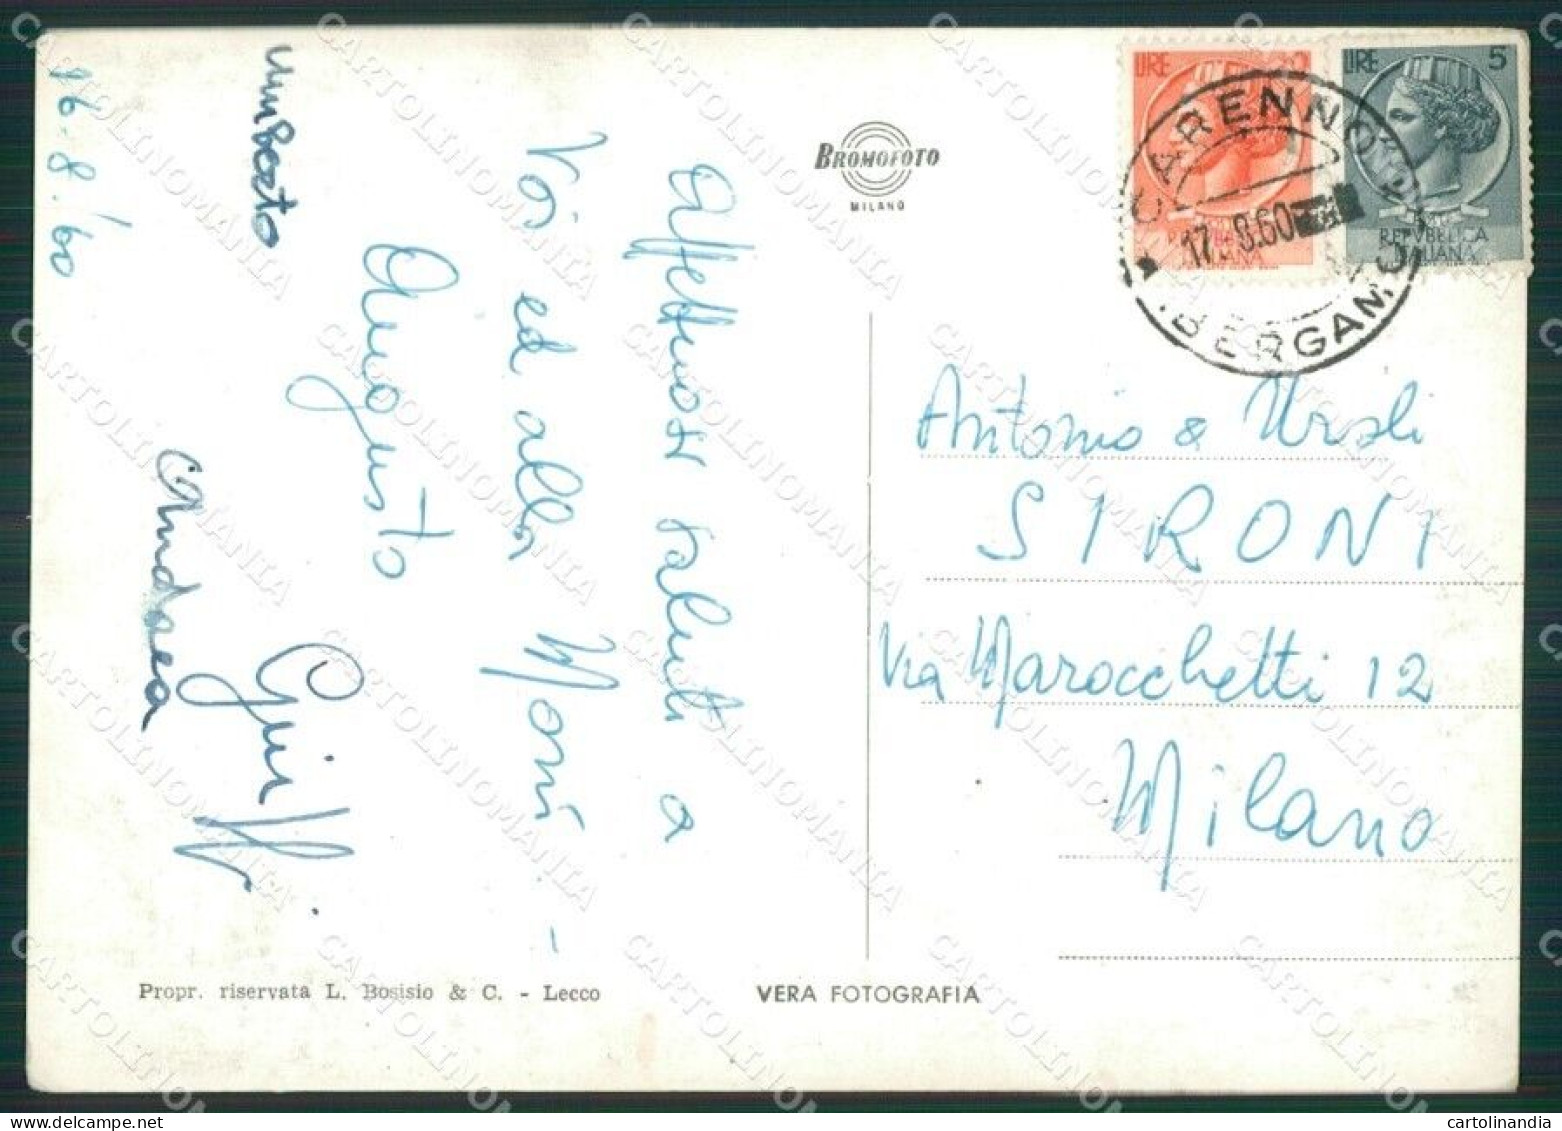 16-8.'60
Affettuosi saluti a
Voi ed alla Moni. -
Augusto
Umberto
Giusy
Andrea
BROMOFOTO
MILANO
LIRE
LIRE 5
REPVBBLICA
ITALIANA
CARENNO
17.8.60
BERGAMO
Antonio & Ursli
SIRONI
Via Marocchetti 12
Milano
Propr. riservata L. Bosisio & C. - Lecco
VERA FOTOGRAFIA
CARTOLINOMANIA
cartolinandia